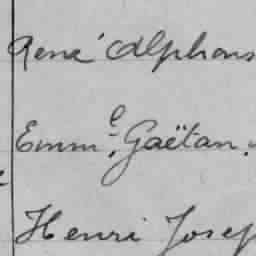 René Alphons
Emm.el Gaëtan.
Henri Josep